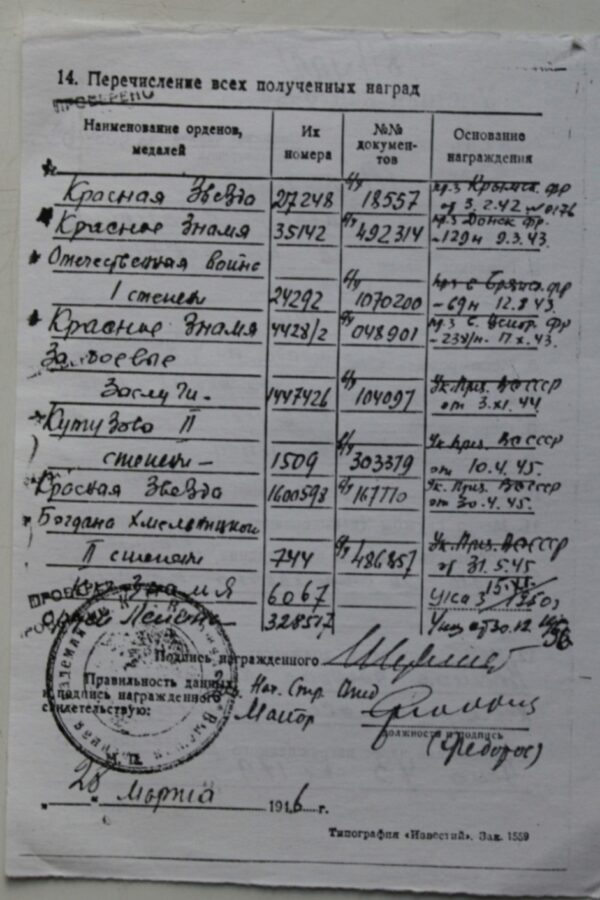 14. Перечисление всех полученных наград
ПРОВЕРЕНО
Наименование орденов, медалей Их номера №№ документов Основание награждения
Красная Звезда 217248 б/у 18557 пр.в Крымск. фр
от 3.2.42 №0176
Красное Знамя 35142 492314 Донск фр.
129н 9.3.43.
Отечественная война
I степен 24292 б/у 1070200 69н 12.8.43.
Красное Знамя 4428/2 048901
238/н.
За боевые
Заслуги. 1447426 б/у 104097 Ук.През. ВС СССР
от 3.XI.44
Кутузова II
степени 1509 303379 Ук.През. ВС СССР
от 10.4.45.
Красная Звезда 1600598 167770 Ук. През. ВС СССР
от 30.4.45.
Богдана Хмельницкого
II степени 744 486857 Ук.През. ВС СССР
от 31.5.45
Знамя 6067
Ленина
Подпись награжденного
Правильность данных
и подпись награжденного
свидетельствую:
Нач. Стр. Отд
Майор
должность и подпись
(Федоров)
"28" Марта 1946 г.
Типография «Известий». Зак. 1559